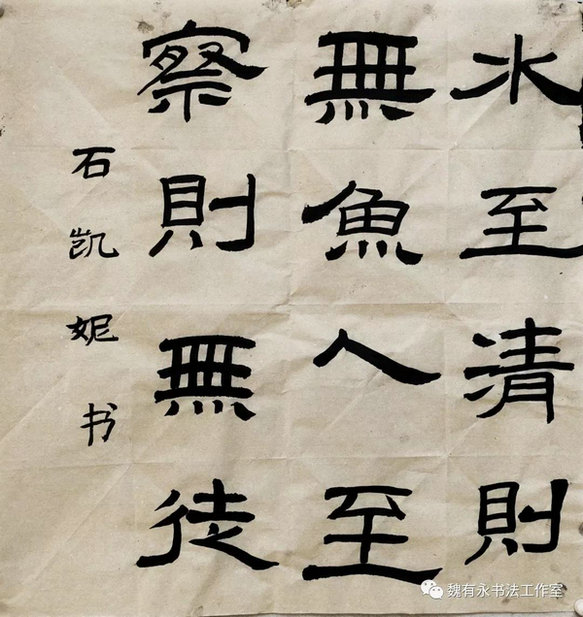 水至清則
無魚人至
察則無徒
石凯妮书
魏有永书法工作室